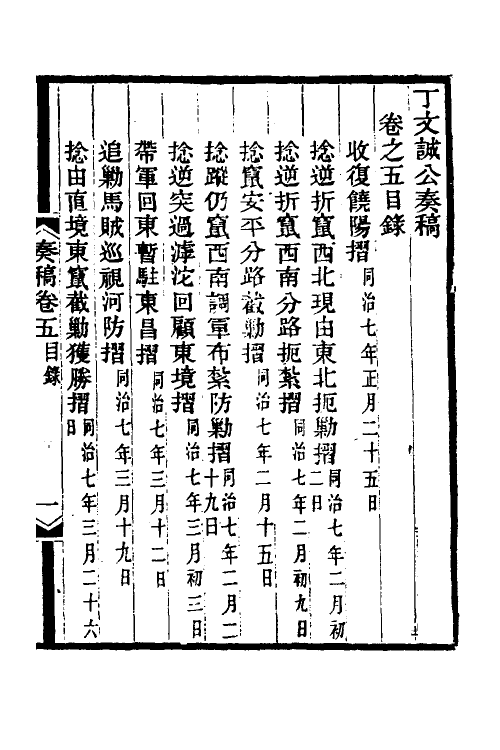 丁文誠公奏稿
卷之五目錄
收復饒陽摺同治七年正月二十五日
捻逆折竄西北現由東北扼勦摺同治七年二月初二日
捻逆折竄西南分路扼紮摺同治七年二月初九日
捻竄安平分路截勦摺同治七年二月十五日
捻蹤仍竄西南調軍布紮防勦摺同治七年二月二十九日
捻逆突過滹沱回顧東境摺同治七年三月初三日
帶軍回東暫駐東昌摺同治七年三月十二日
追勦馬賊巡視河防摺同治七年三月十九日
捻由直境東竄截勦獲勝摺同治七年三月二十六日
奏稿卷五目錄
一